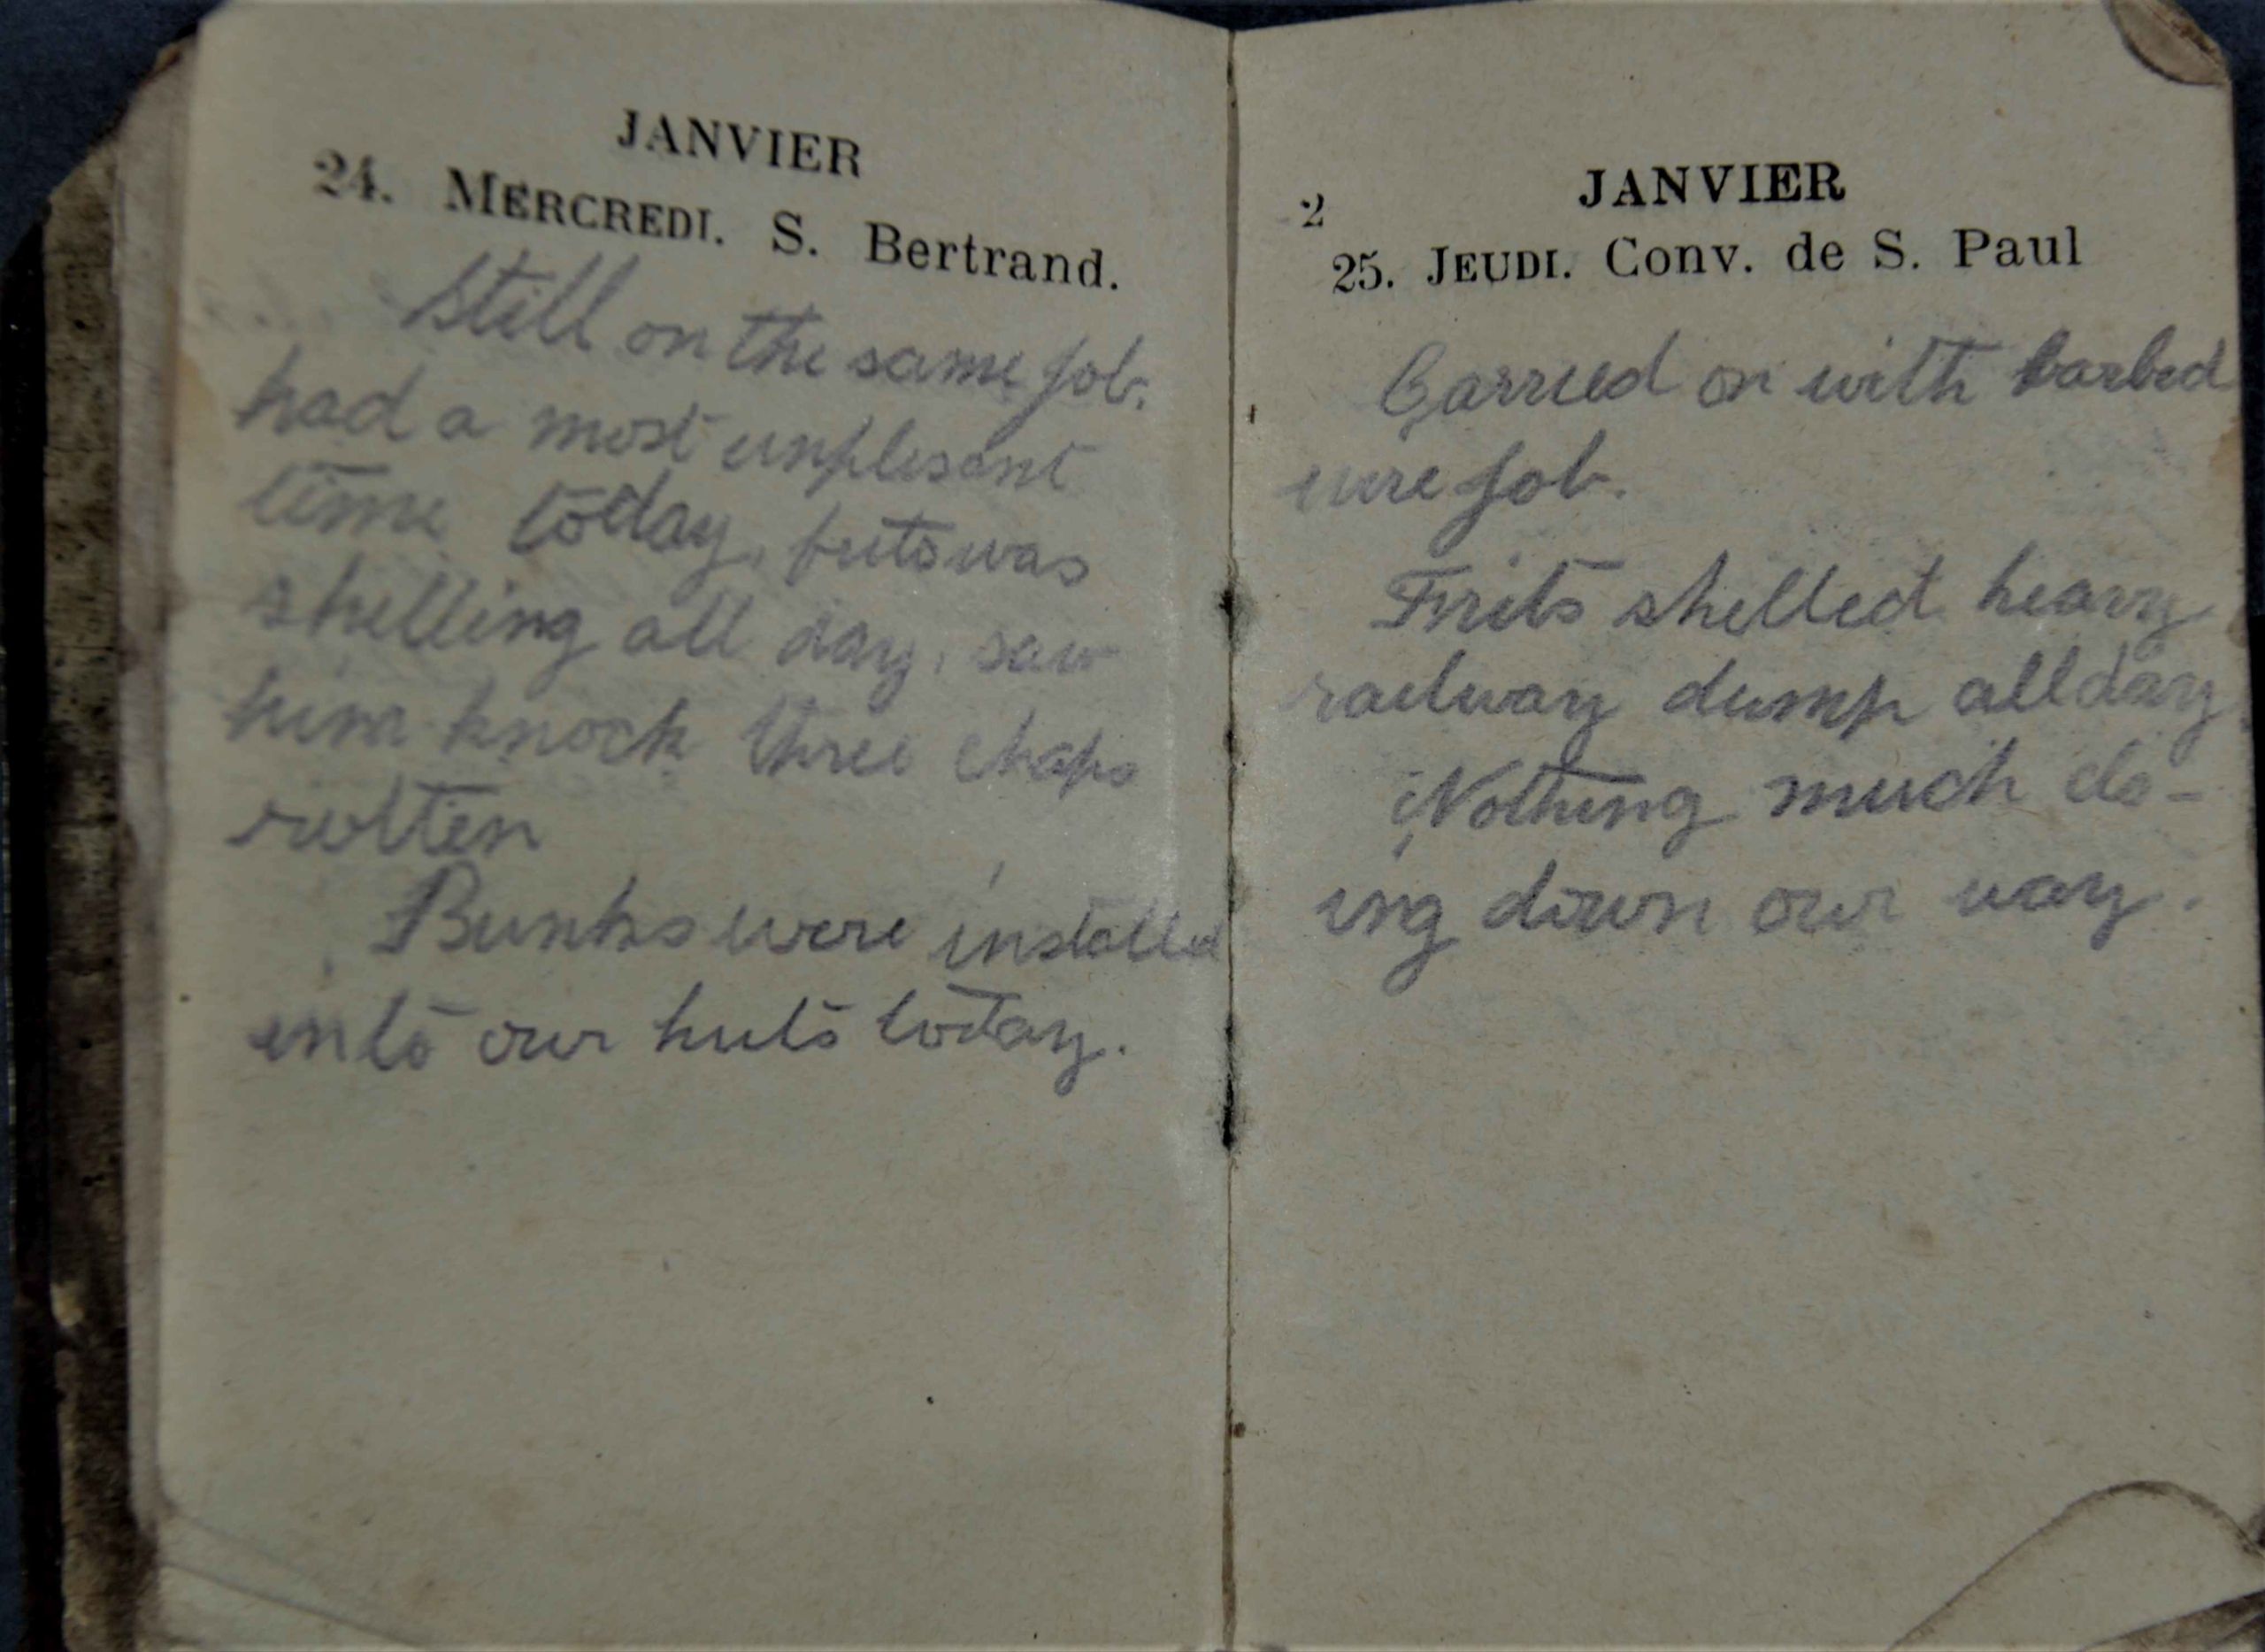 JANVIER
24. MERCREDI. S. Bertrand.
Still on the same job.
had a most unplesant
time today, frits was
shelling all day, saw
him knock three chaps
rotten
Bunks were installed
into our huts today.
2
JANVIER
25. JEUDI. Conv. de S. Paul
Carried on with barbed
wire job.
Frits shelled heavy
railway dump all day
Nothing much do-
ing down our way.